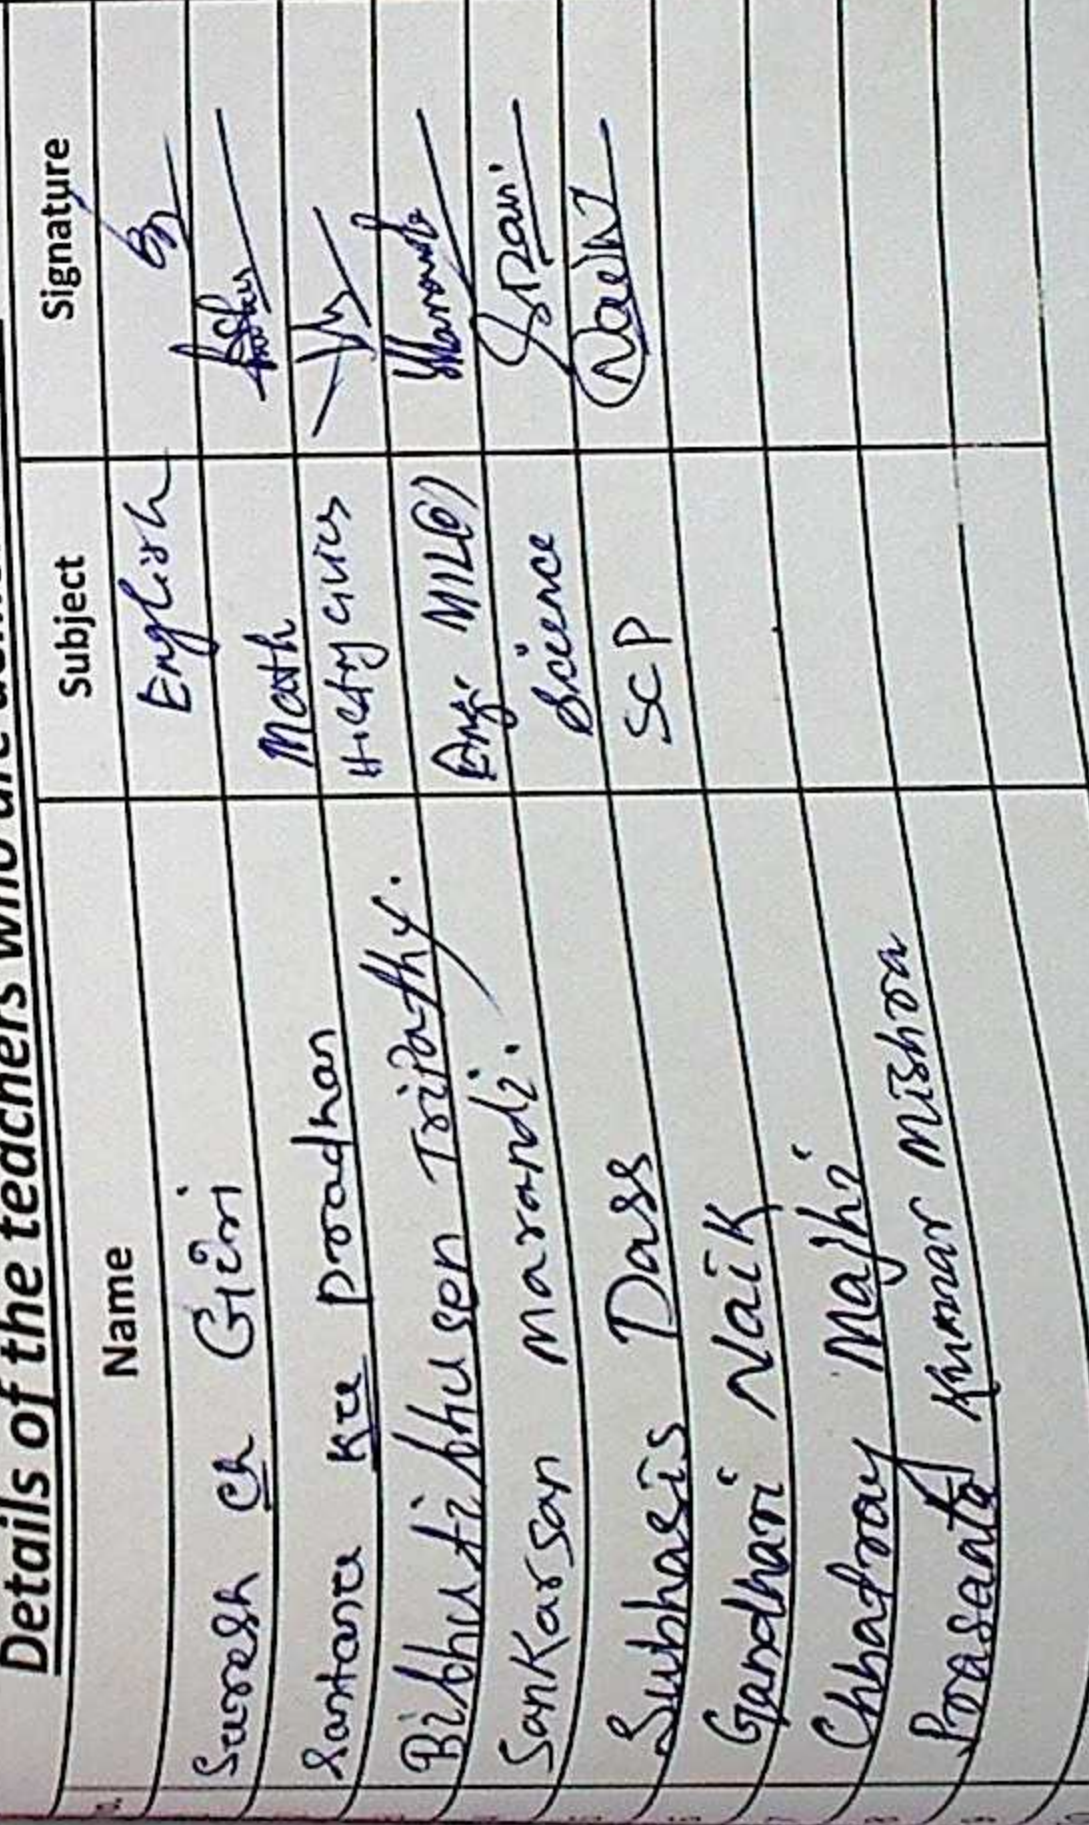 Details of the teachers who are
Name Subject Signature
Suresh Ch Giri English
Santanu Ku Pradhan Math
Bibhutibhusen Tripathy. History Civics
Sankarsan Marandi. Eng. MIL(O)
Subhasis Dass Science
Gandhari Naik SCP
Chhatray Majhi
Prasanta Kumar Mishra